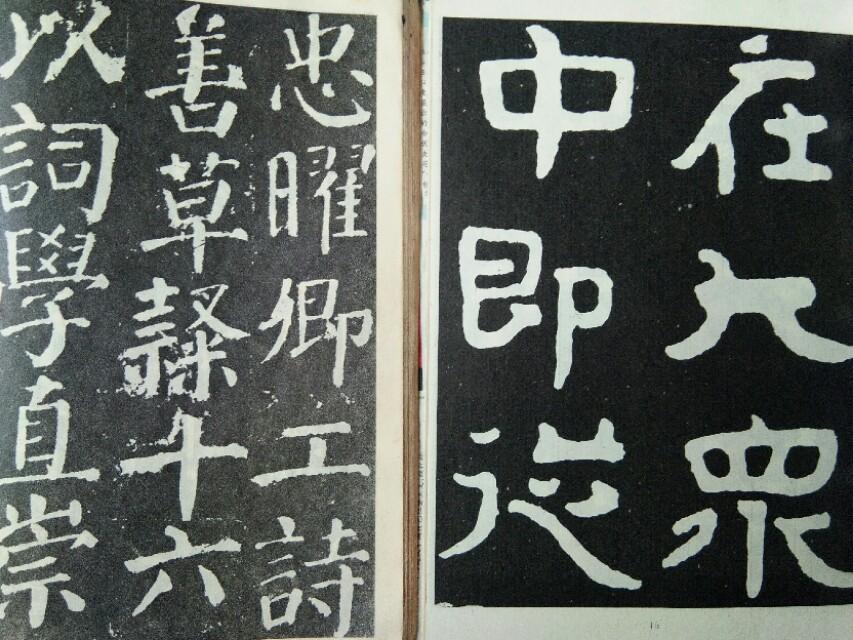 在大眾
中即從
忠曜卿工詩
善草隸十六
以詞學直崇